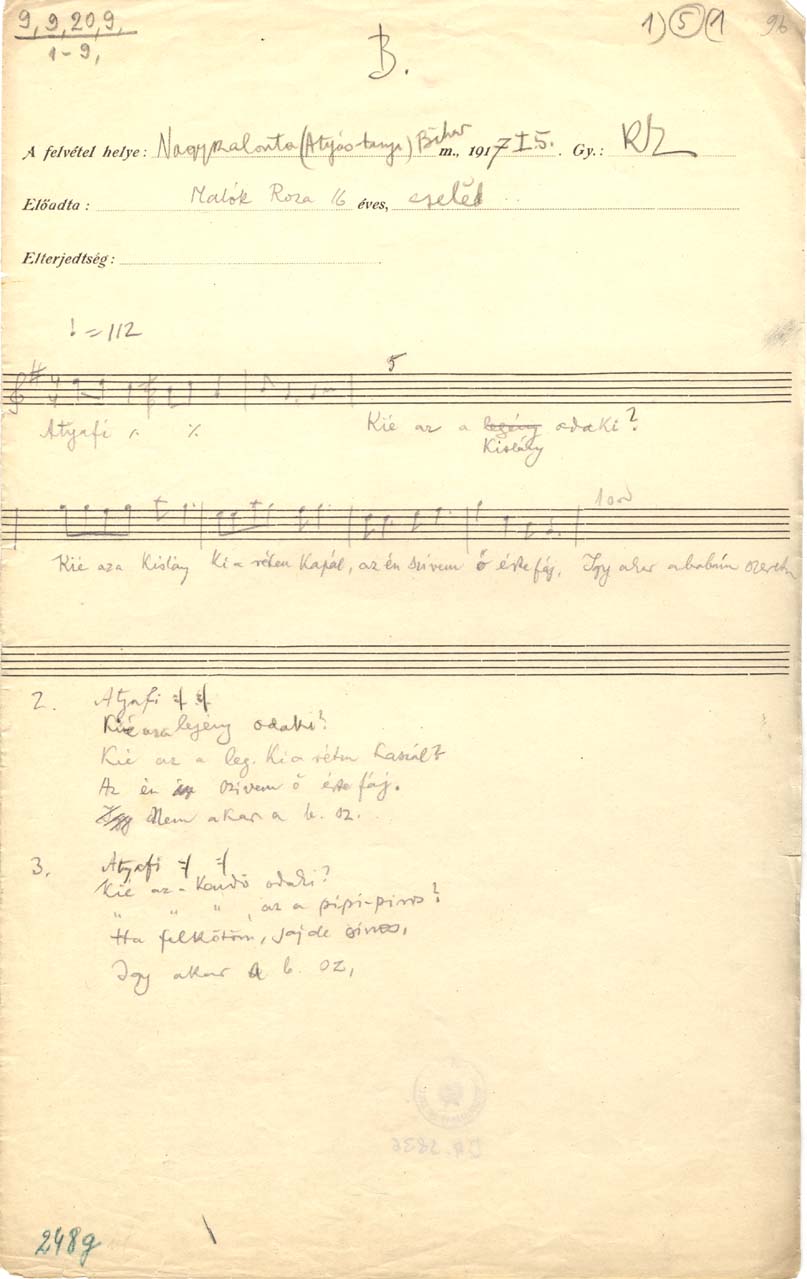 9, 9, 20, 9,
1-9,
1) 5 (1
96
B.
A felvétel helye: Nagyszalonta (Atyás-tanya) Bihar m., 1917 I 5. Gy.: KZ
Előadta: Malók Roza 16 éves, cseléd
Elterjedtség:
= 112
5
Atyafi ٪ ٪ Kié az a legény odaki?
Kislány
Kié aza Kislány Ki a réten kapál, az én szivem ő érte fáj, Igy akar a babám
2. Atyafi :/ :/
Kié aza legény odaki?
Kié az a leg. Ki a réten kaszál?
Az én szivem ő érte fáj.
Igy Nem akar a b. sz.
3. Atyafi :/ :/
Kié az a Kendő odaki?
" " " , az a pipi-piros?
Ha felkötöm, jajde sinos,
Igy akar a b. sz,
248g